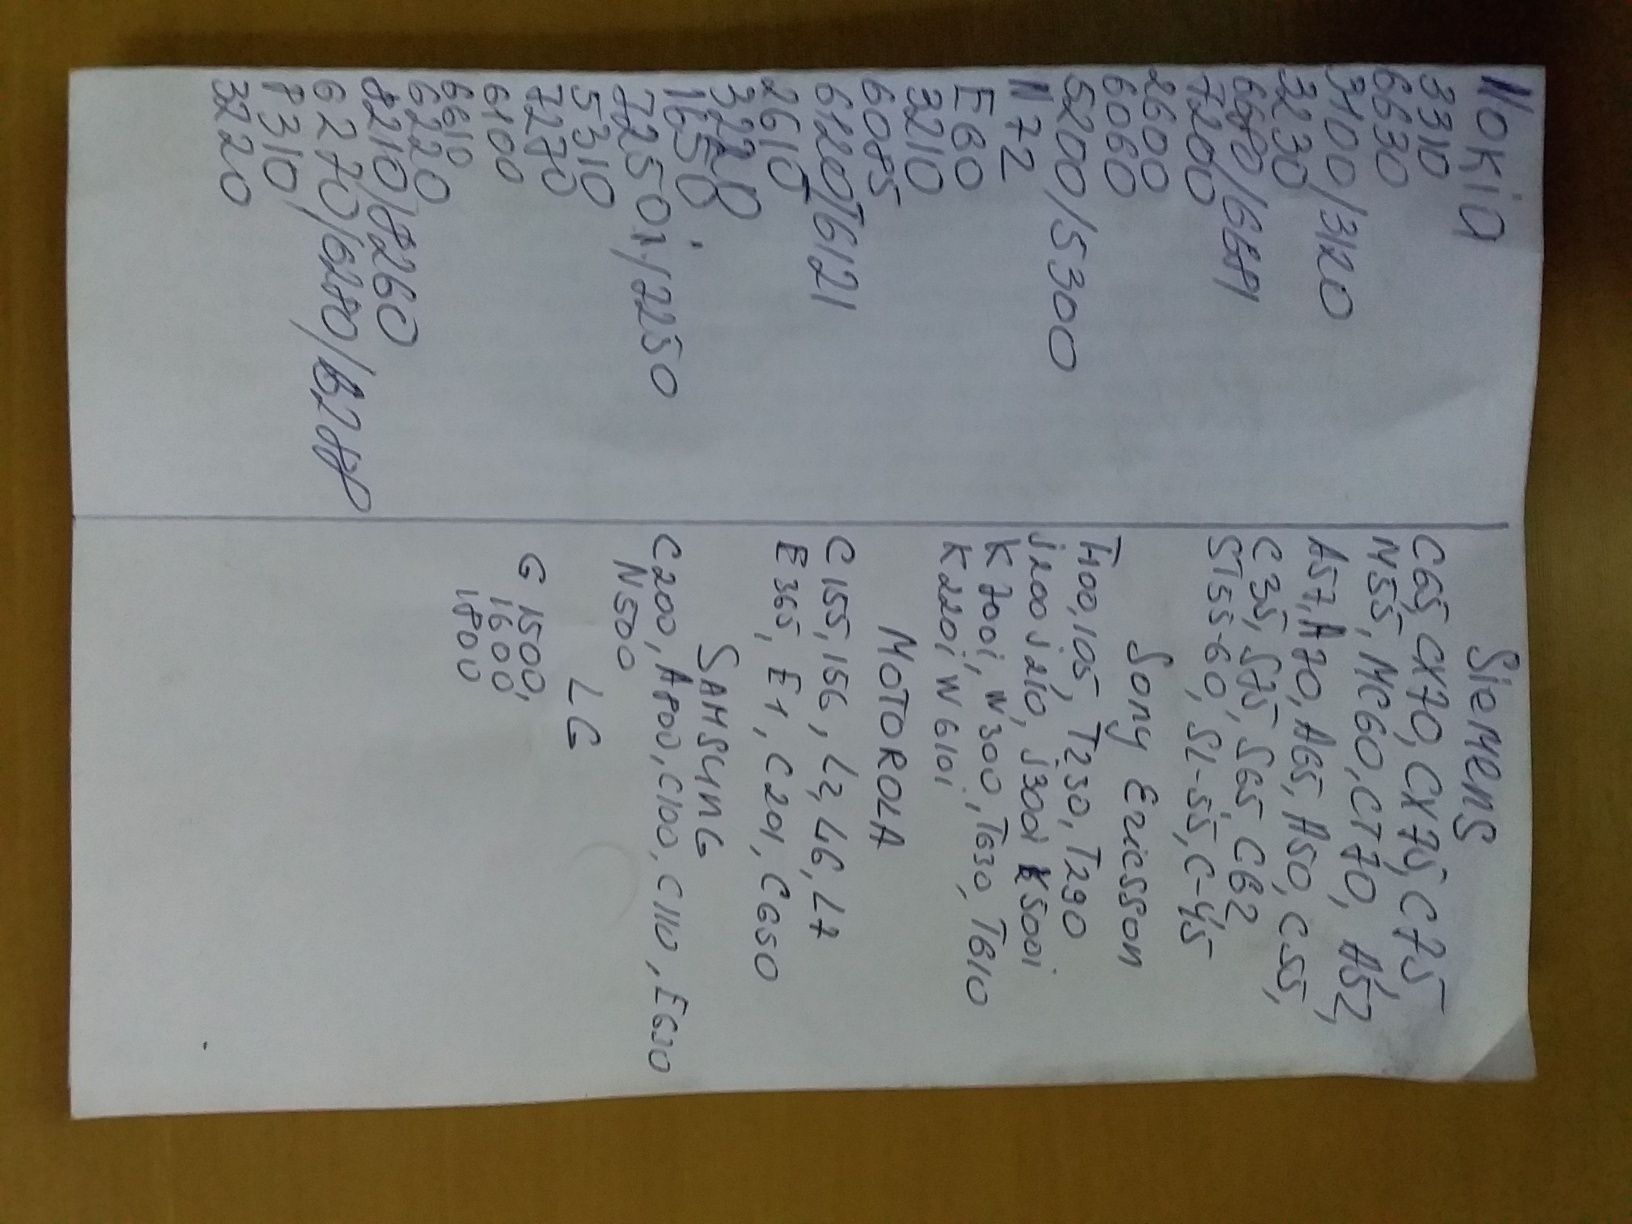 Nokia
3310
6630
3100/3120
3230
6680/6681
7200
2600
6060
5200/5300
N72
E60
3210
6085
6120/6121
2610
3220
1650
7250i/2250
5310
7270
6100
6610
6220
8210/8260
6270/6280/6288
8310
3220
Siemens
C65, CX70, CX75, C75
M55, MC60, CT70, A52,
A57, A70, A65, A50, C55,
C35, S75, S65 C62
ST55-60, SL-55, C-45
Sony Ericsson
T100, 105, T230, T290
J200 J210, J300i K500i
K700i, W300, T630, T610
K220i W610i
MOTOROLA
C155, 156, L2, L6, L7
E365, E1, C201, C650
SAMSUNG
C200, A800, C100, C110, E630
N500
LG
G 1500,
1600
1800